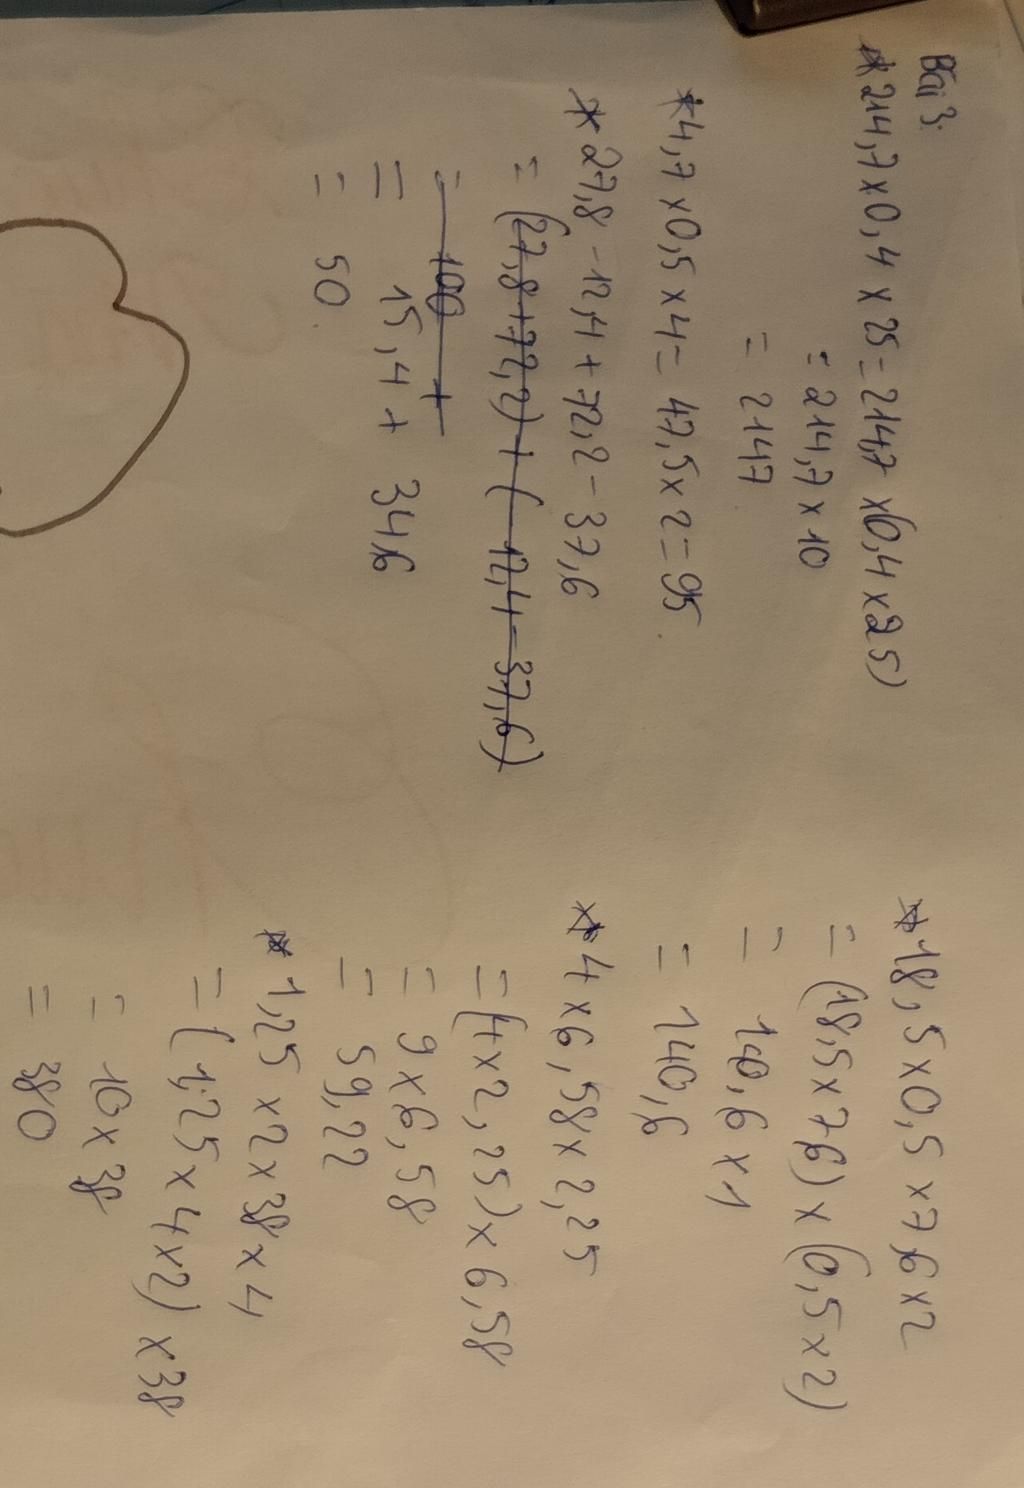 Bài 3:
* 214,7 x 0,4 x 25 = 214,7 x (0,4 x 25)
= 214,7 x 10
= 2147
* 4,7 x 0,5 x 4 = 47,5 x 2 = 95
* 27,8 - 12,4 + 72,2 - 37,6
= (27,8 + 72,2) + ( 12,4 - 37,6)
= 100 +
= 15,4 + 34,6
= 50
* 18,5 x 0,5 x 7,6 x 2
= (18,5 x 7,6) x (0,5 x 2)
= 140,6 x 1
= 140,6
* 4 x 6,58 x 2,25
= (4 x 2,25) x 6,58
= 9 x 6,58
= 59,22
* 1,25 x 2 x 38 x 4
= (1,25 x 4 x 2) x 38
= 10 x 38
= 380